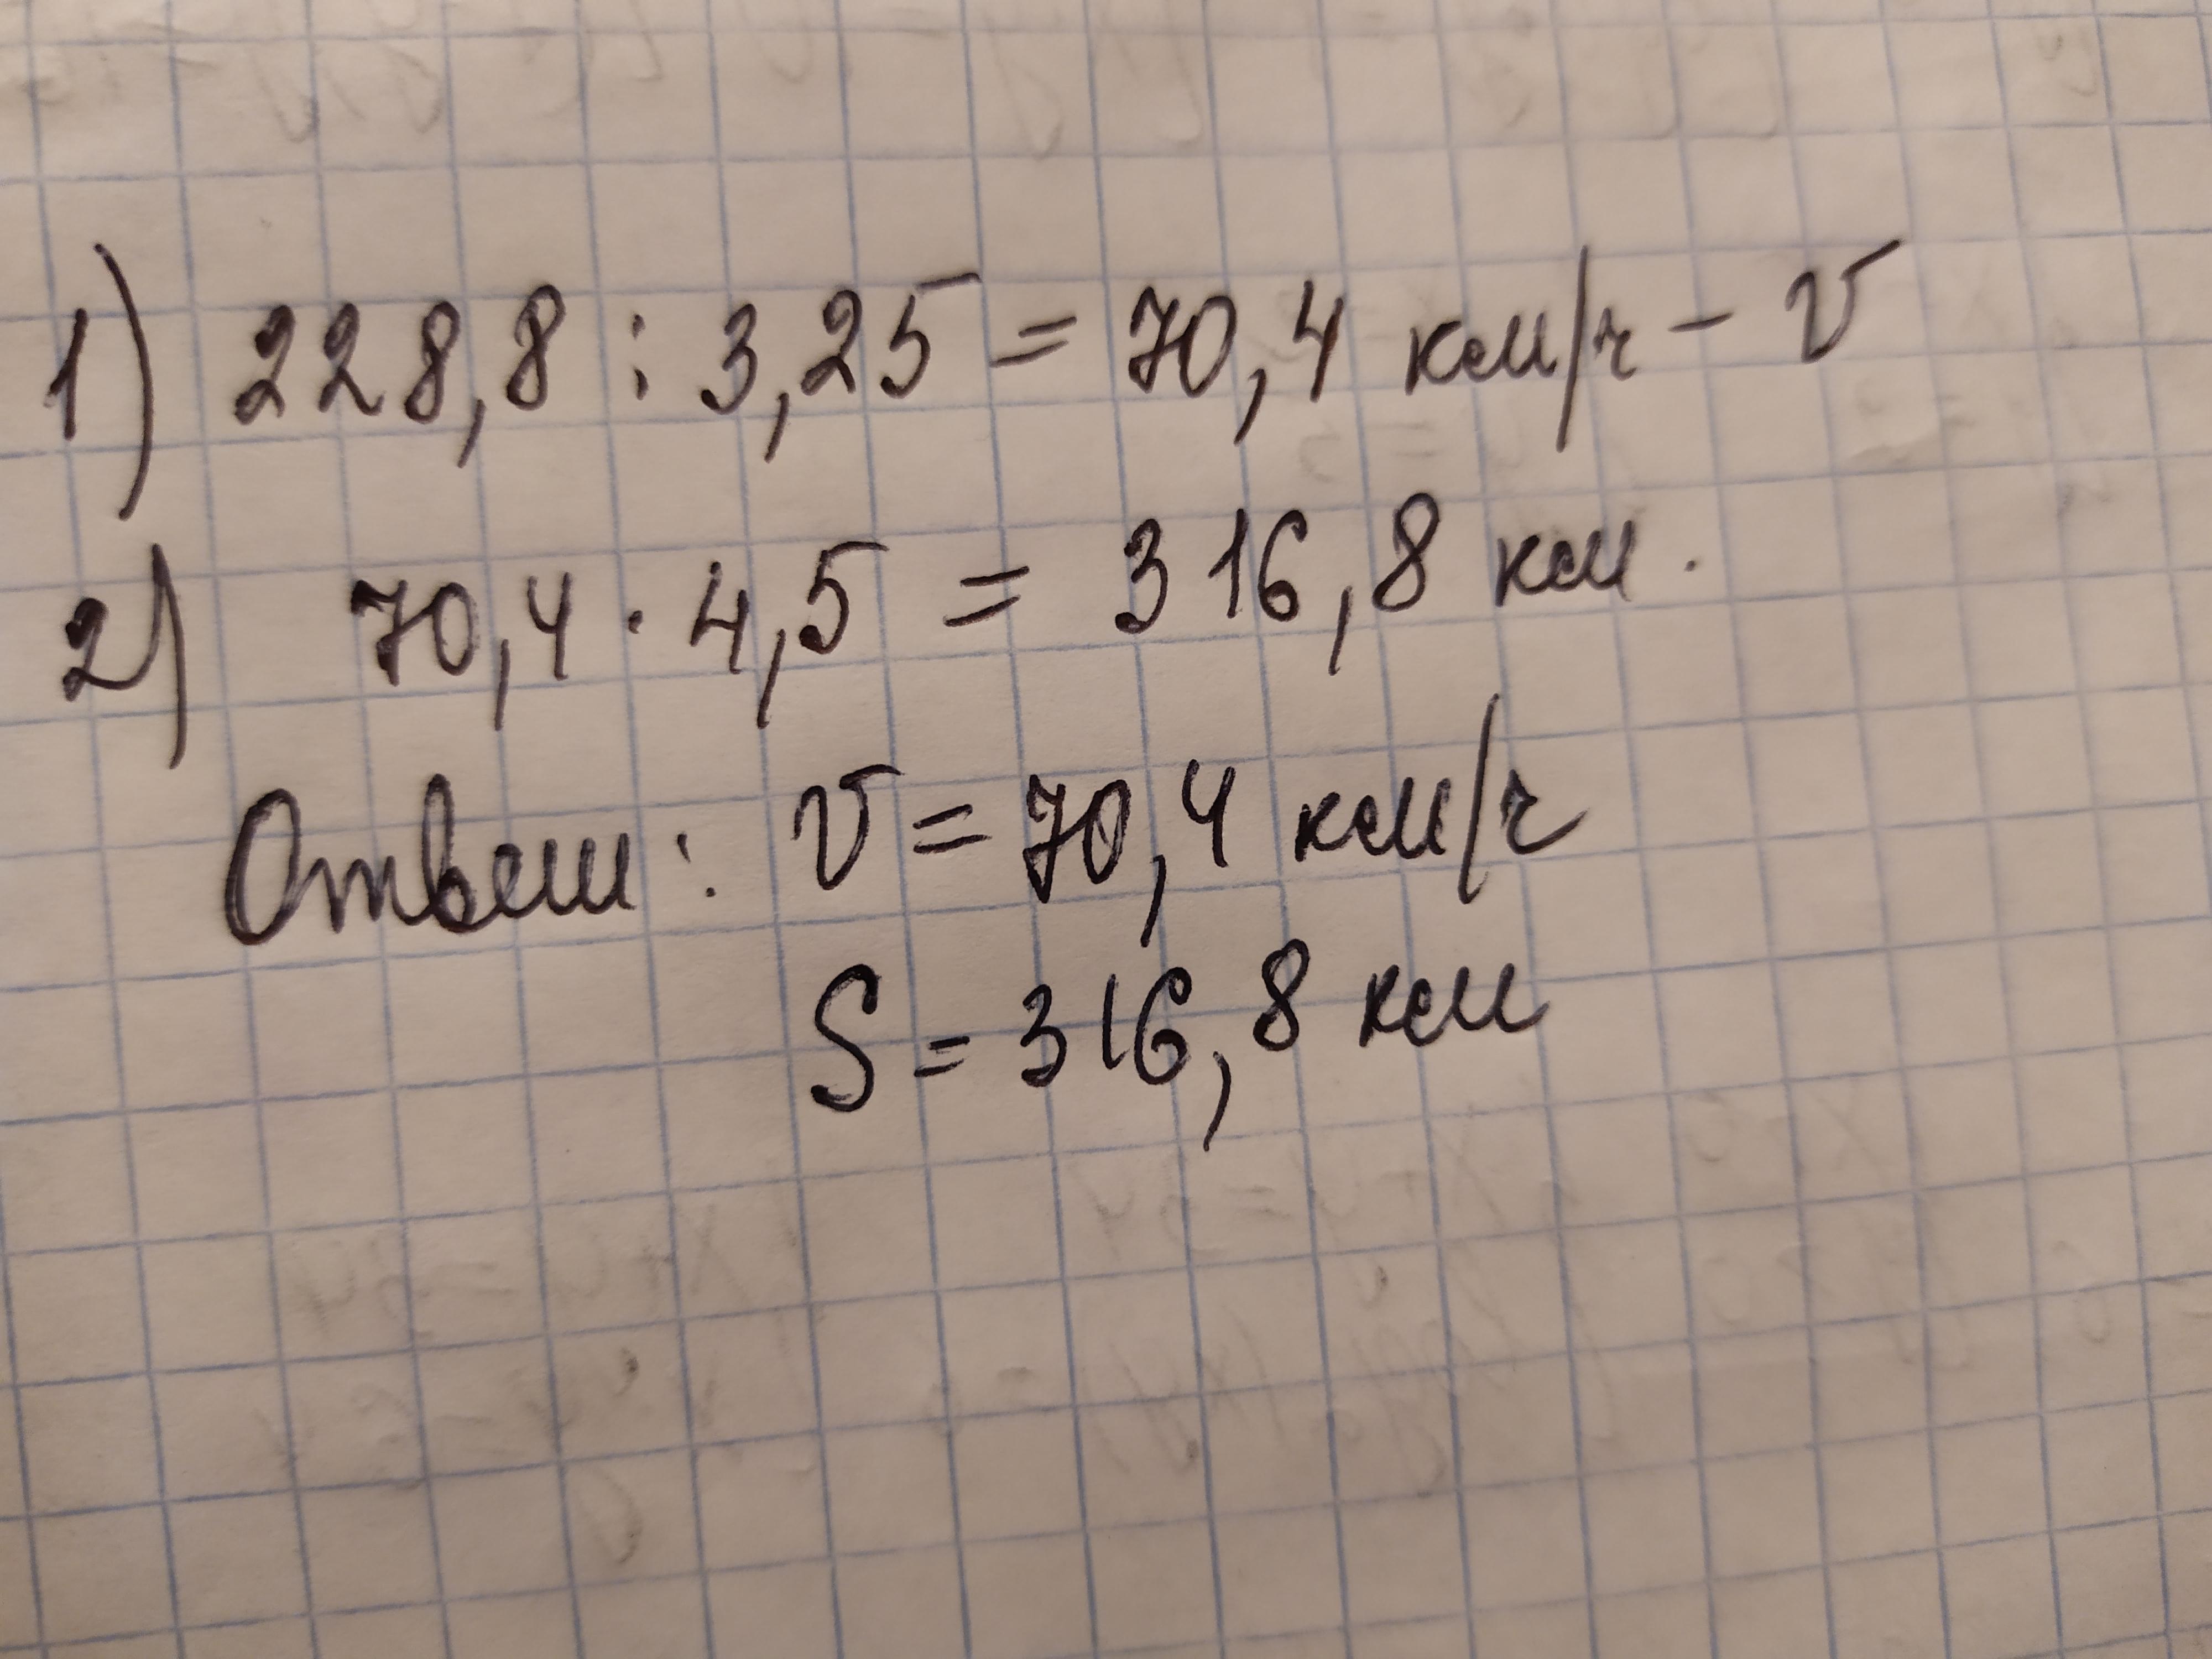 1) 228,8 : 3,25 = 70,4 км/ч – v
2) 70,4 · 4,5 = 316,8 км.
Ответ: v = 70,4 км/ч
S = 316,8 км